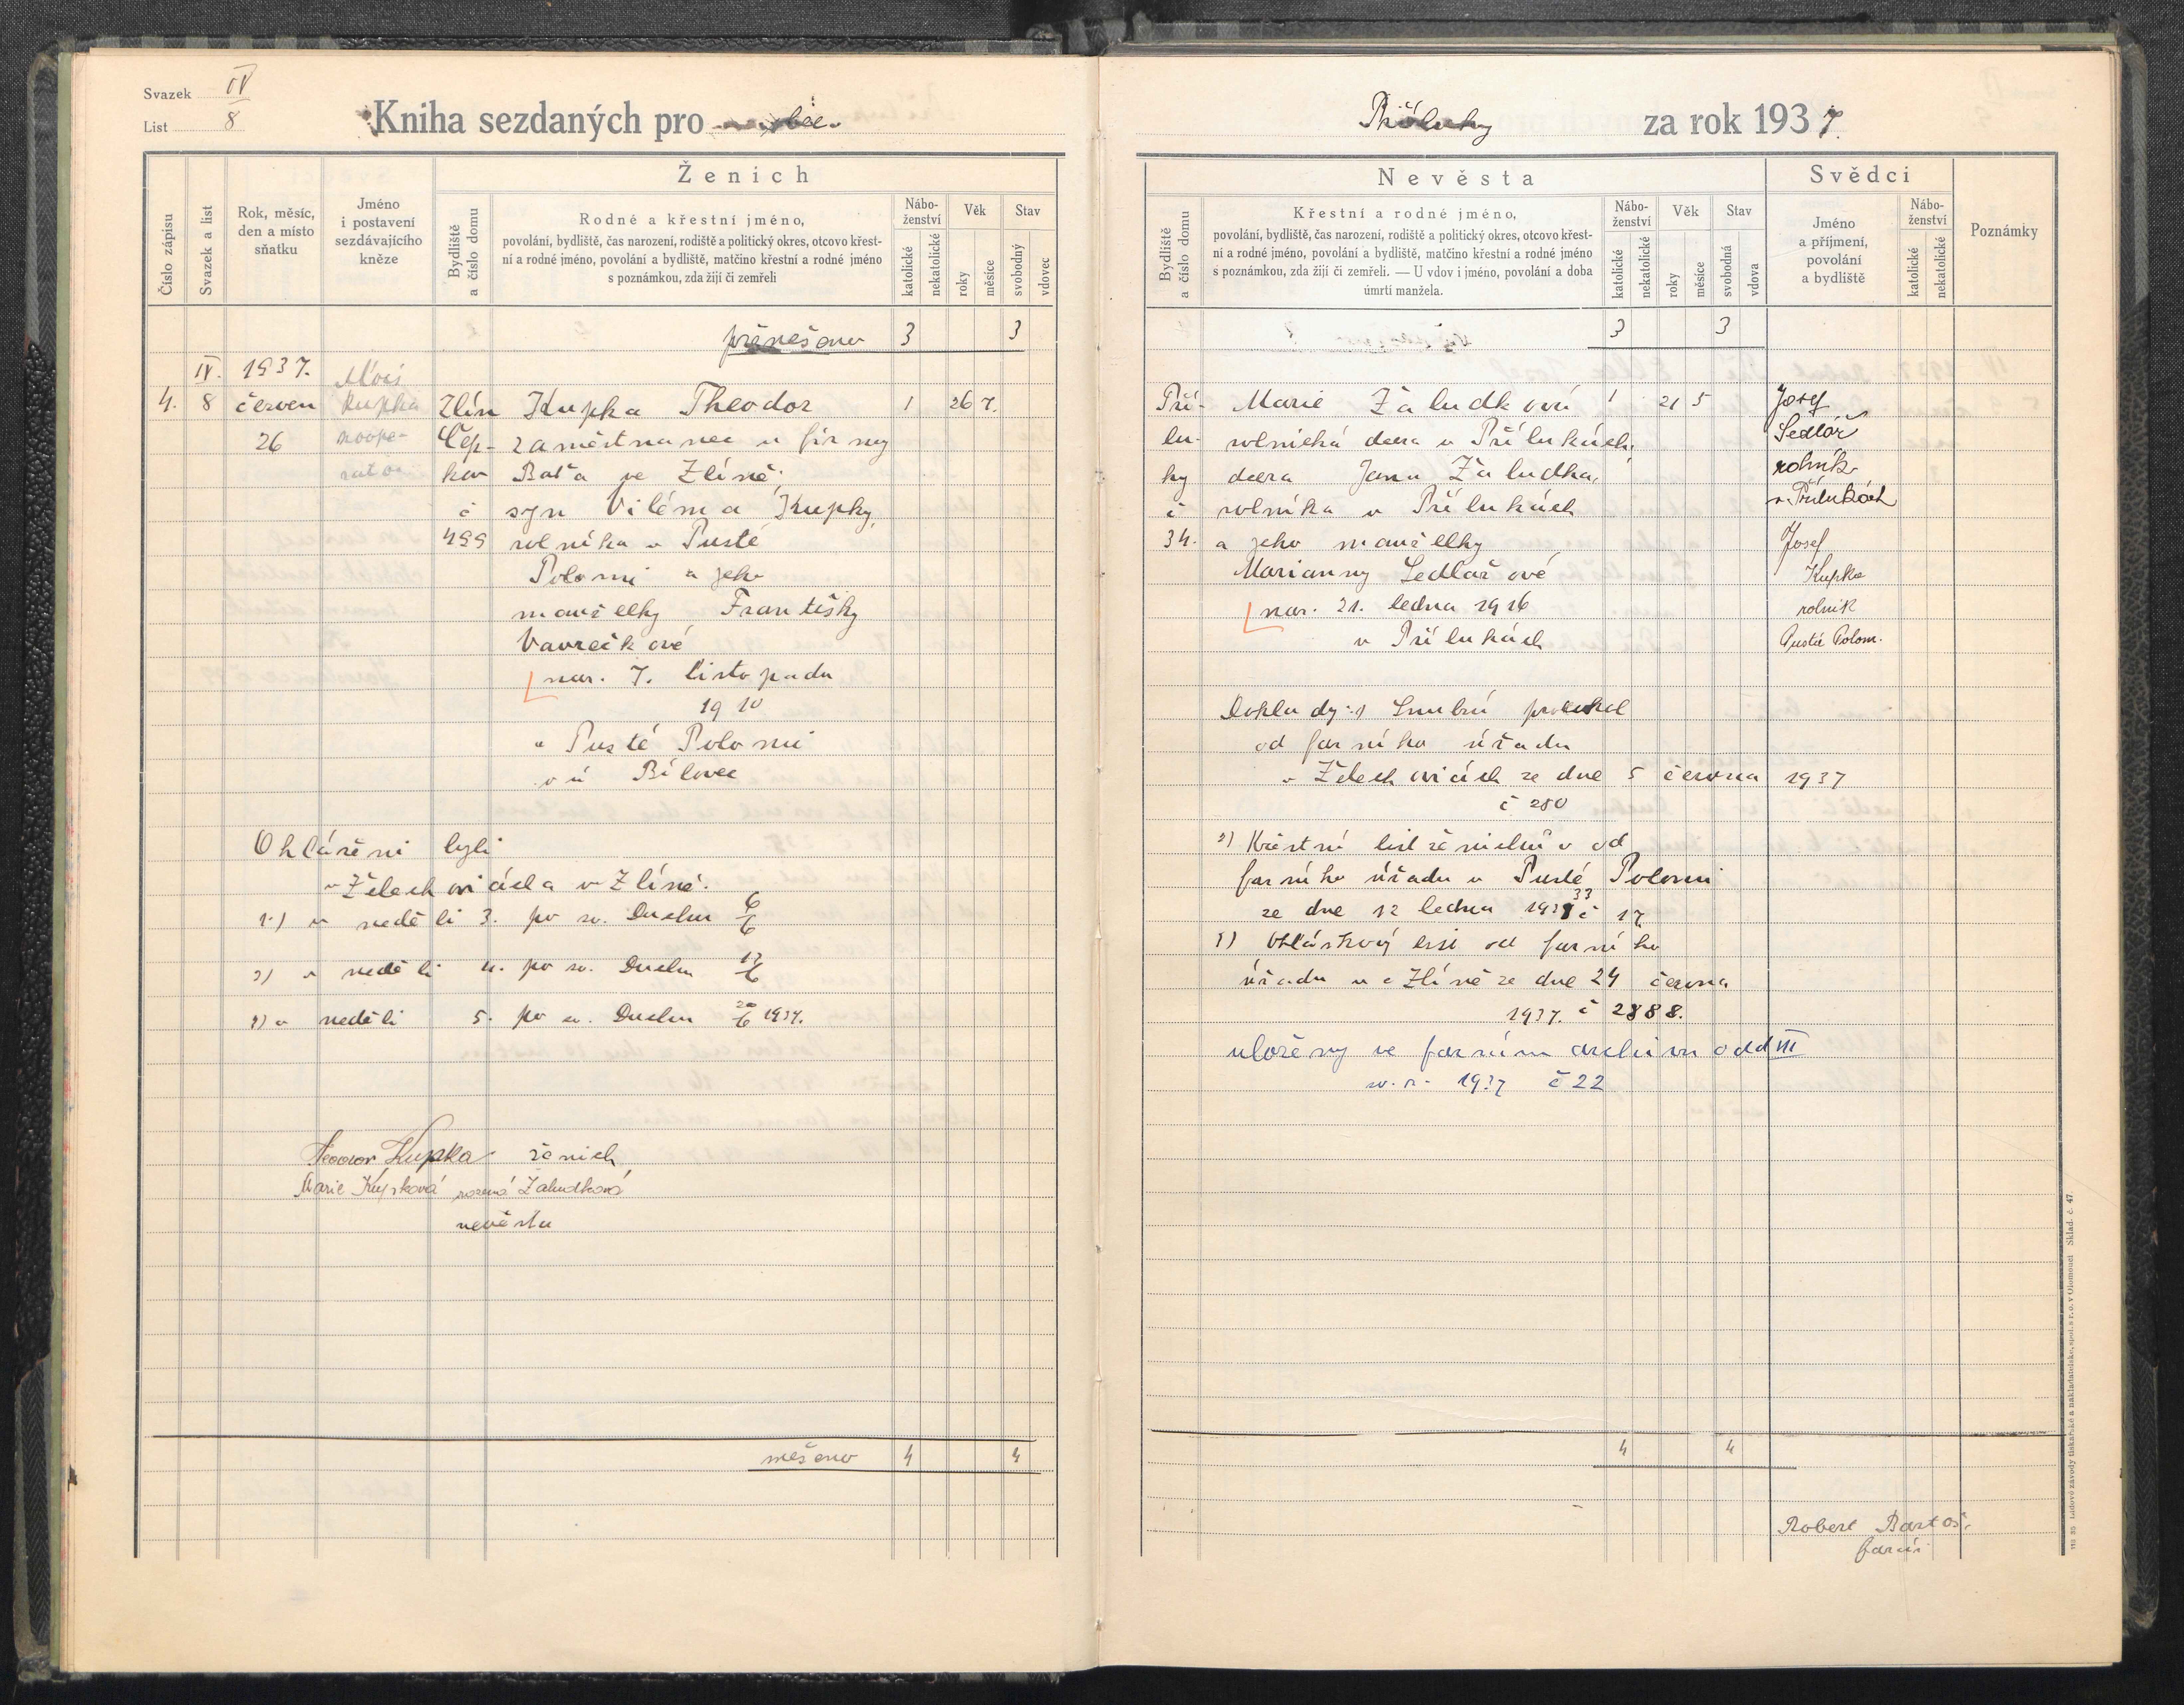 Svazek IV
List 8
Kniha sezdaných pro
Číslo zápisu
Svazek a list
Rok, měsíc,
den a místo
sňatku
Jméno
i postavení
sezdávajícího
kněze
Ženich
Bydliště
a číslo domu
Rodné a křestní jméno,
povolání, bydliště, čas narození, rodiště a politický okres, otcovo křest-
ní a rodné jméno, povolání a bydliště, matčino křestní a rodné jméno
s poznámkou, zda žijí či zemřeli
Nábo-
ženství
katolické
nekatolické
Věk
roky
měsíce
Stav
svobodný
vdovec
přenešeno 3 3
IV. 1937. Alois
4. 8 červen Kupka Zlín Kupka Theodor 1 26 7.
26 koope- Čep- zaměstnanec u firmy
rator kov Baťa ve Zlíně,
č syn Viléma Kupky,
499 rolníka v Pusté
Polomi a jeho
manželky Františky
Vavrečkové
nar. 7. listopadu
1910
v Pusté Polomi
Bílovec
Ohlášeni byli
v Želechovicích a v Zlíně.
1.) v neděli 3. po sv. Duchu 6/6
2) v neděli 4. po sv. Duchu 13/6
3) v neděli 5. po sv. Duchu 20/6 1937.
Teodor Kupka ženich
Marie Kupková rozená Žaludková
nevěsta
nešeno 4 4
Příluky
za rok 1937.
Nevěsta
Bydliště
a číslo domu
Křestní a rodné jméno,
povolání, bydliště, čas narození, rodiště a politický okres, otcovo křest-
ní a rodné jméno, povolání a bydliště, matčino křestní a rodné jméno
s poznámkou, zda žijí či zemřeli. — U vdov i jméno, povolání a doba
úmrtí manžela.
Nábo-
ženství
katolické
nekatolické
Věk
roky
měsíce
Stav
svobodná
vdova
Svědci
Jméno
a příjmení,
povolání
a bydliště
Nábo-
ženství
katolické
nekatolické
Poznámky
3 3
Pří- Marie Žaludková 1 21 5 Josef
lu- rolnická dcera v Přílukách, Sedlář
ky dcera Jana Žaludka, rolník
č rolníka v Přílukách v Přílukách
34. a jeho manželky Josef
Marianny Sedlářové Kupka
nar. 21. ledna 1916 rolník
v Přílukách Pustá Polom.
Doklady: 1) Snubní protokol
od farního úřadu
v Želechovicích ze dne 5 června 1937
č 280
2) Křestní list ženichův od
farního úřadu v Pusté Polomi
ze dne 12 ledna 33 č 17
3) Ohláškový list od farního
úřadu ve Zlíně ze dne 24 června
1937. č 2888.
uloženy ve farním archivu odd III
1937 č 22
4 4
Robert Bartoš,
farář
Lidové závody tiskařské a nakladatelské, spol. s r. o. v Olomouci Sklad. č. 47